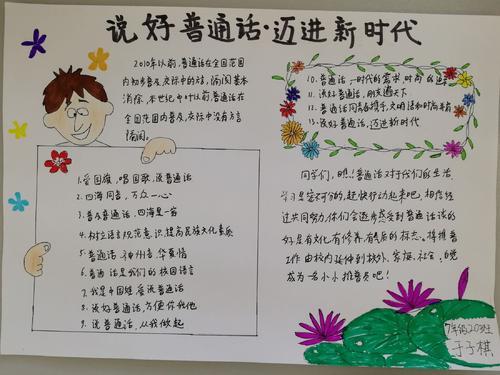 说好普通话·迈进新时代
2010年以前,普通话在全国范围
内初步普及,交际中的方言隔阂基本
消除,本世纪中叶以前,普通话在
全国范围内普及,交际中没有方言
隔阂。
1.爱国旗,唱国歌,说普通话
2.四海同音,万众一心
3.普及普通话,四海是一家
4.树立语言规范意识,提高民族文化素质
5.普通话,神州音,华夏情
6.普通话是我们的校园语言
7.我是中国娃,爱说普通话
8.说好普通话,方便你我他
9.说普通话,从我做起
10.普通话,时代的需求,时尚的追求
11.说好普通话,朋友遍天下
12.普通话同青春携手,文明语和时尚并肩
13.说好普通话,迈进新时代
同学们,听!普通话对于我们的生活、
学习是密不可分的,赶快行动起来吧,相信经
过共同努力,你们会逐步感受到普通话说的
好是有文化、有修养、有素质的标志。将推普
工作由校内延伸到校外、家庭、社会,自觉
成为一名小小推普员吧!
7年级20班
于子棋